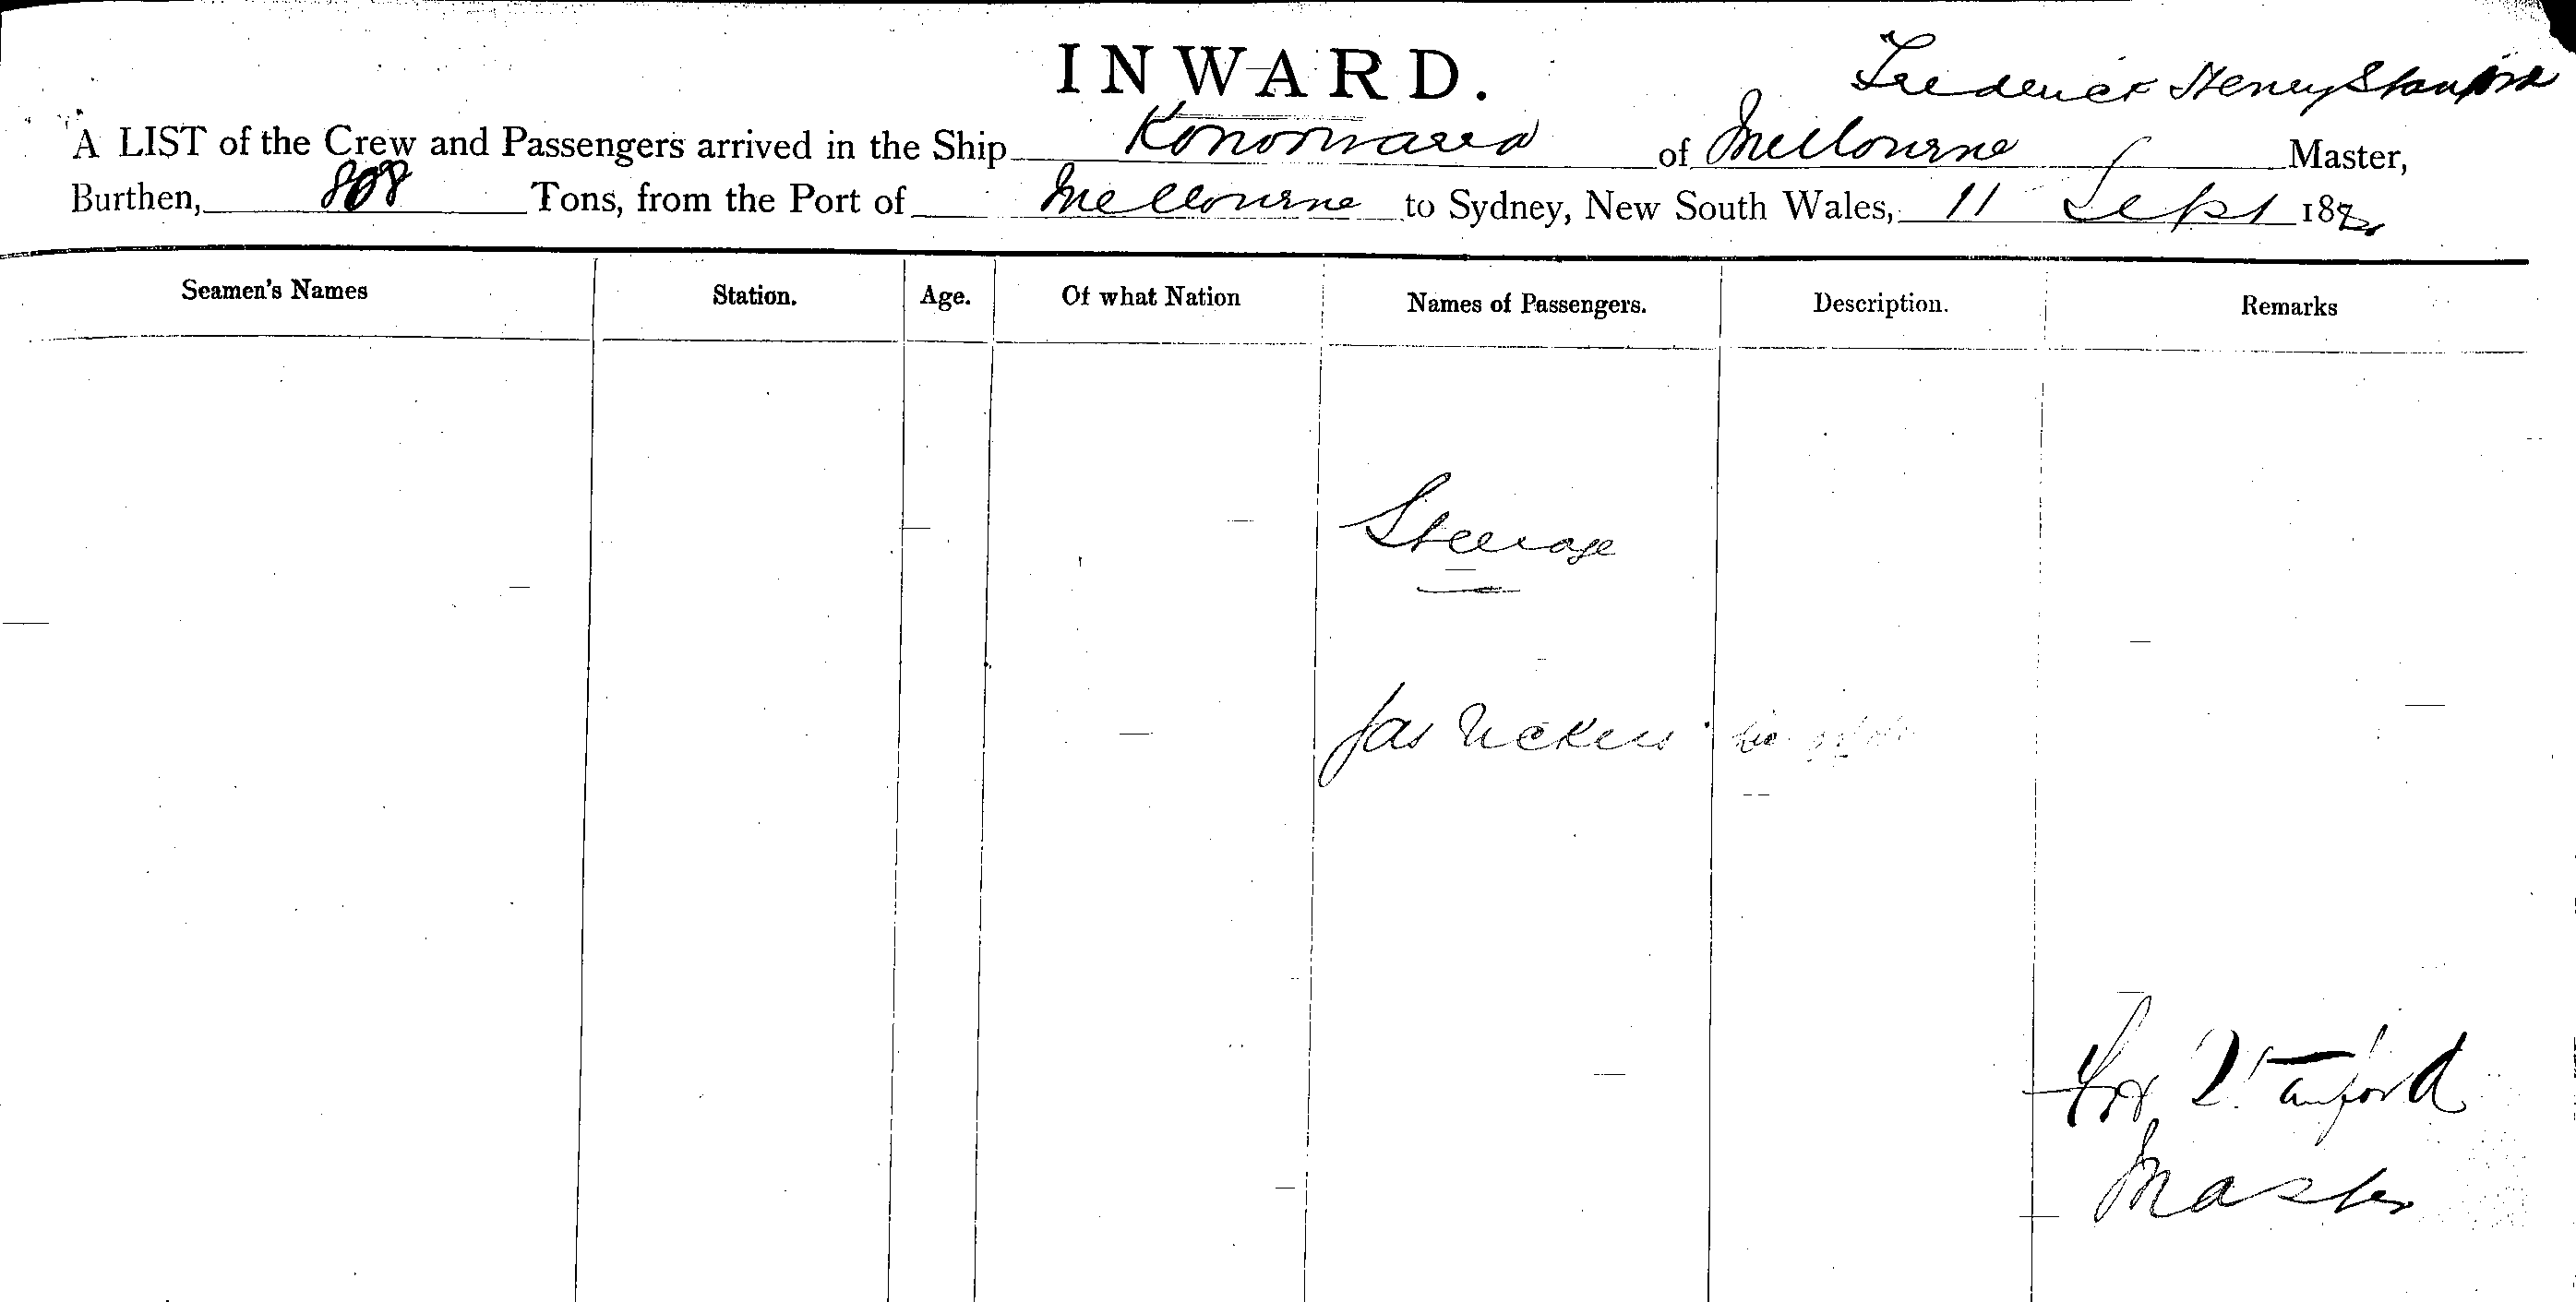 INWARD.
Frederick Henry Stanford
A LIST of the Crew and Passengers arrived in the Ship Konoowarra of Melbourne Master,
Burthen, 808 Tons, from the Port of Melbourne to Sydney, New South Wales, 11 Sept 188
Seamen's Names Station. Age. Of what Nation Names of Passengers. Description. Remarks
Steerage
Jas Vickers
Stanford
Master